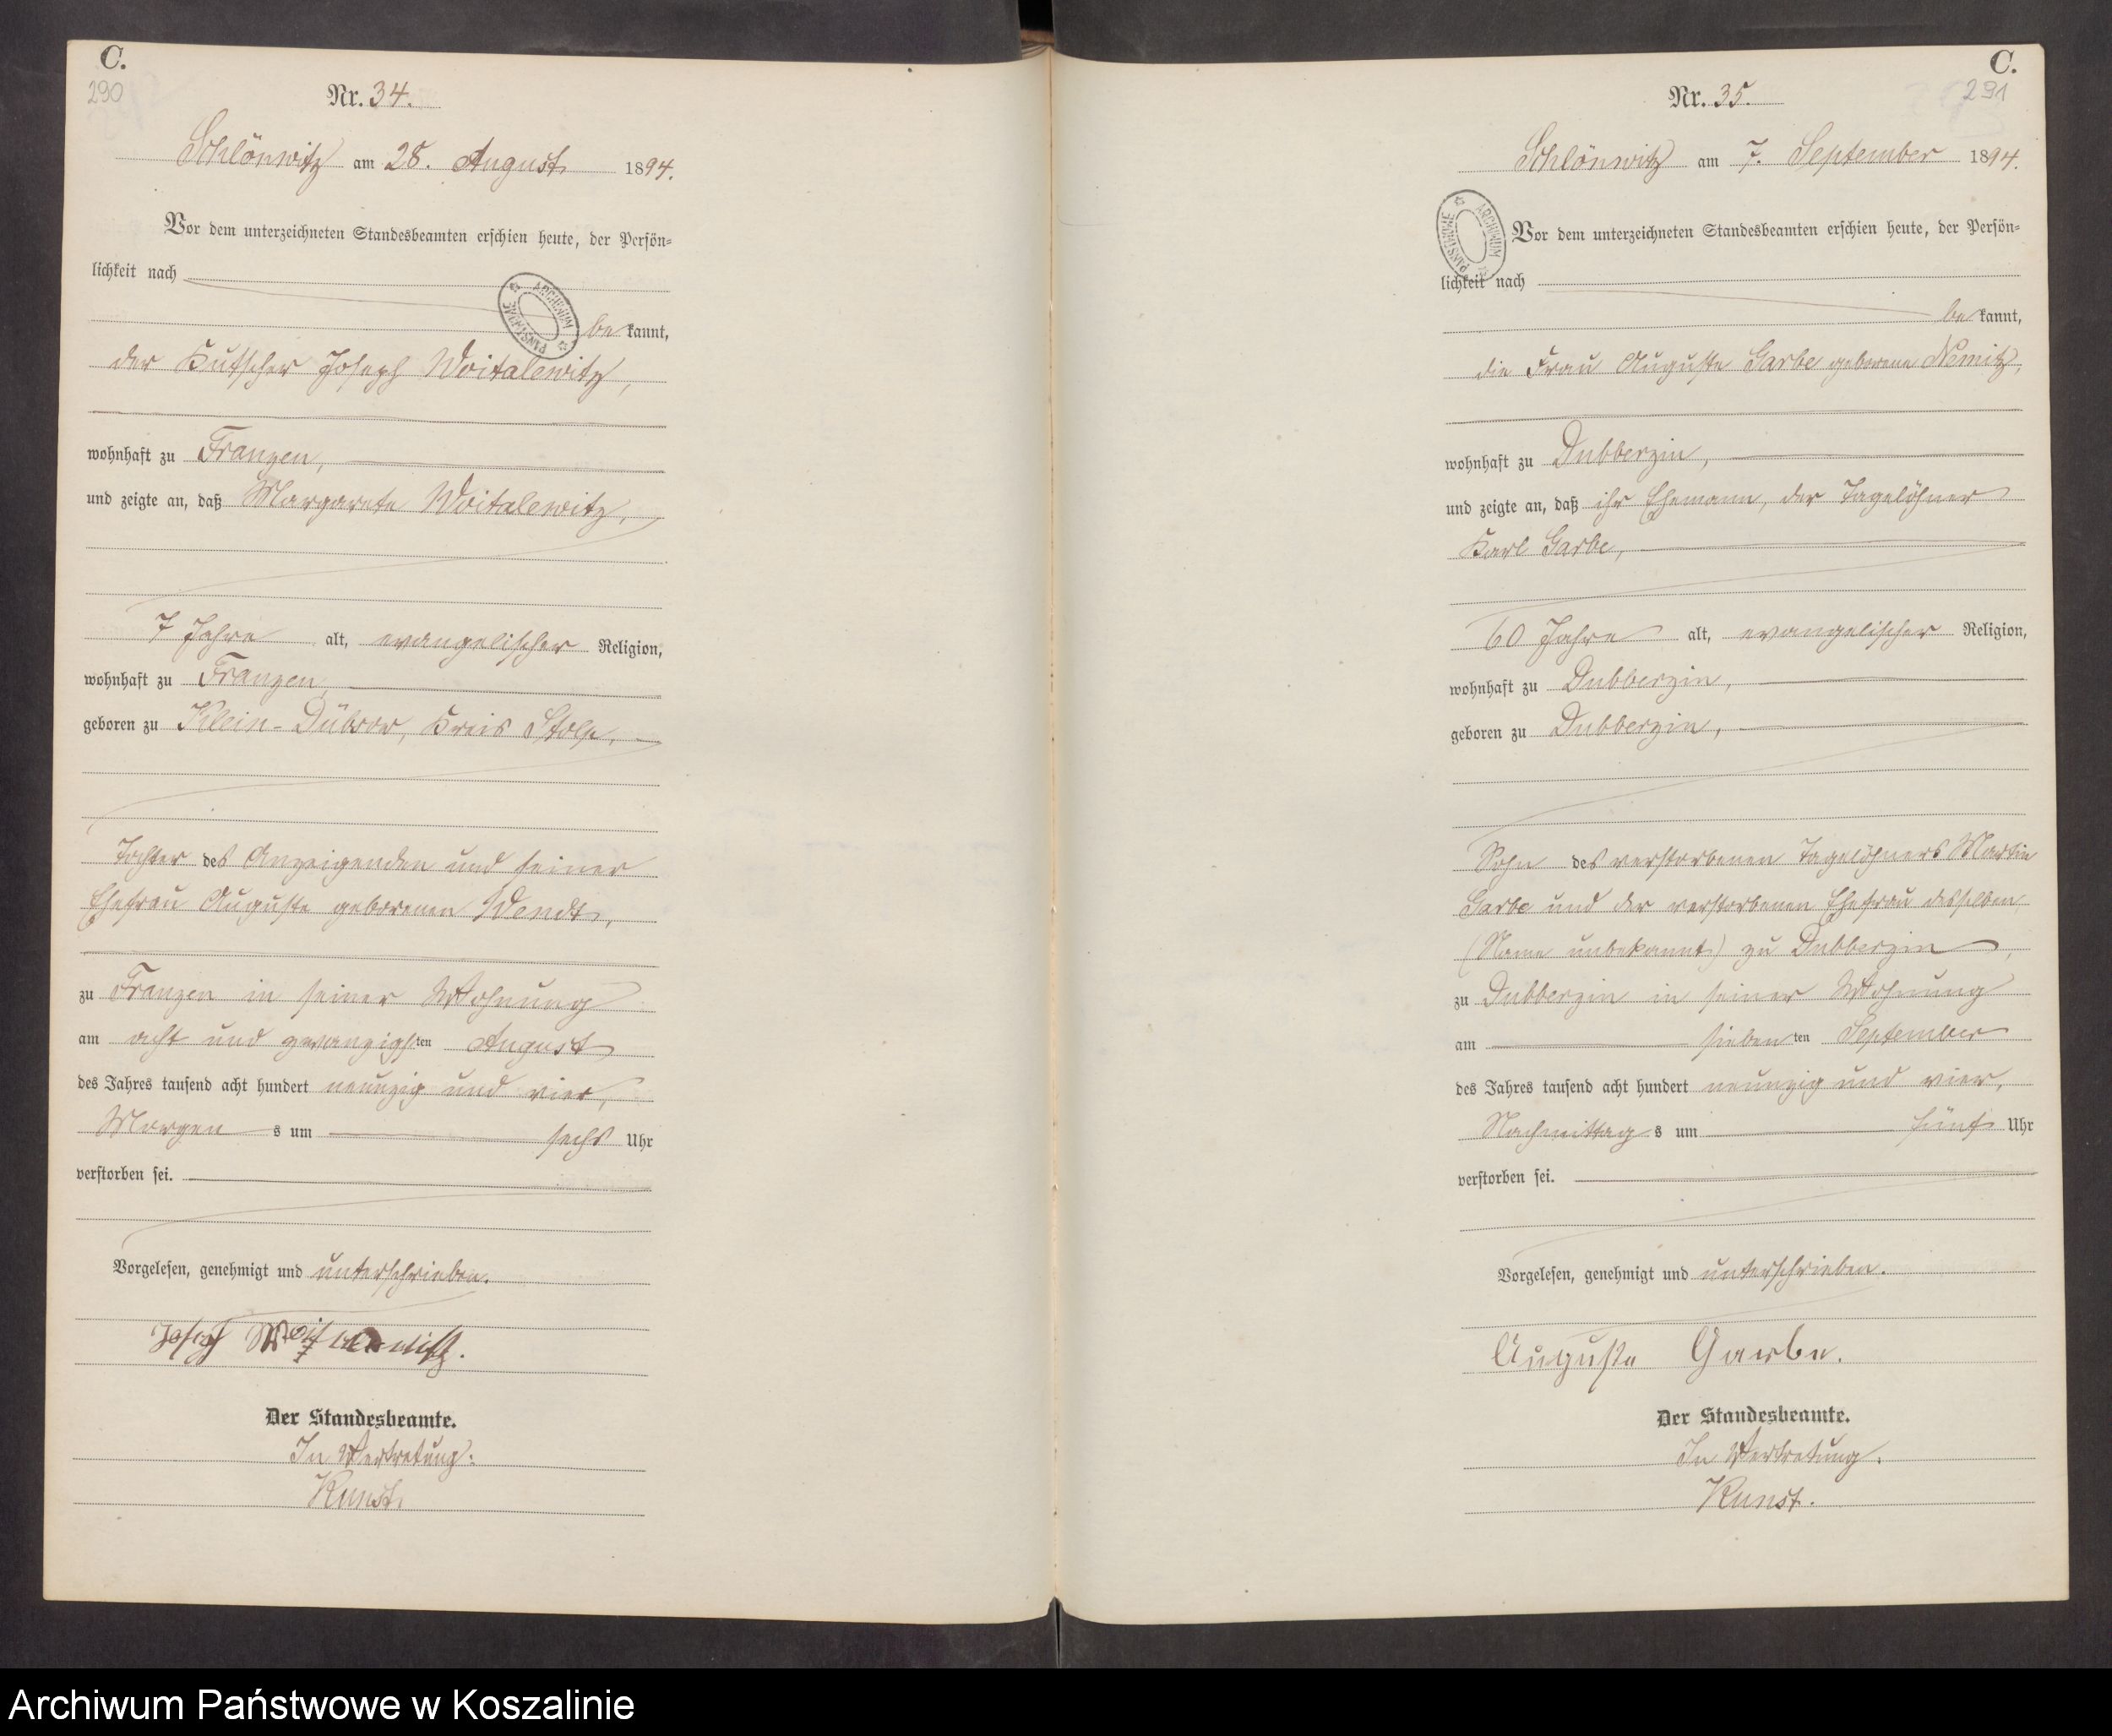 C.
290
Nr. 34.
Schlönwitz am 28. August 1894.
Vor dem unterzeichneten Standesbeamten erschien heute, der Persön-
lichkeit nach
be kannt,
der Kutscher Joseph Woitalewitz,
wohnhaft zu Franzen,
und zeigte an, daß Margarete Woitalewitz,
7 Jahre alt, evangelischer Religion,
wohnhaft zu Franzen
geboren zu Klein-Dübsow, Kreis Stolp,
Tochter des Anzeigenden und seiner
Ehefrau Auguste geborenen Wendt,
zu Franzen in seiner Wohnung
am acht und zwanzigsten August
des Jahres tausend acht hundert neunzig und vier,
Morgen s um sechs Uhr
verstorben sei.
Vorgelesen, genehmigt und unterschrieben.
Josef
Der Standesbeamte.
In Vertretung:
Kunst.
C.
291
Nr. 35.
Schlönwitz am 7. September 1894.
Vor dem unterzeichneten Standesbeamten erschien heute, der Persön-
lichkeit nach
be kannt,
die Frau Auguste Garbe geborene Nemitz,
wohnhaft zu Dubberzin,
und zeigte an, daß ihr Ehemann, der Tagelöhner
Karl Garbe,
60 Jahre alt, evangelischer Religion,
wohnhaft zu Dubberzin,
geboren zu Dubberzin,
Sohn des verstorbenen Tagelöhners Martin
Garbe und der verstorbenen Ehefrau desselben
(Name unbekannt) zu Dubberzin,
zu Dubberzin in seiner Wohnung
am sieben ten September
des Jahres tausend acht hundert neunzig und vier,
Nachmittag s um fünf Uhr
verstorben sei.
Vorgelesen, genehmigt und unterschrieben.
Auguste Garbe.
Der Standesbeamte.
In Vertretung.
Kunst.
Archiwum Państwowe w Koszalinie